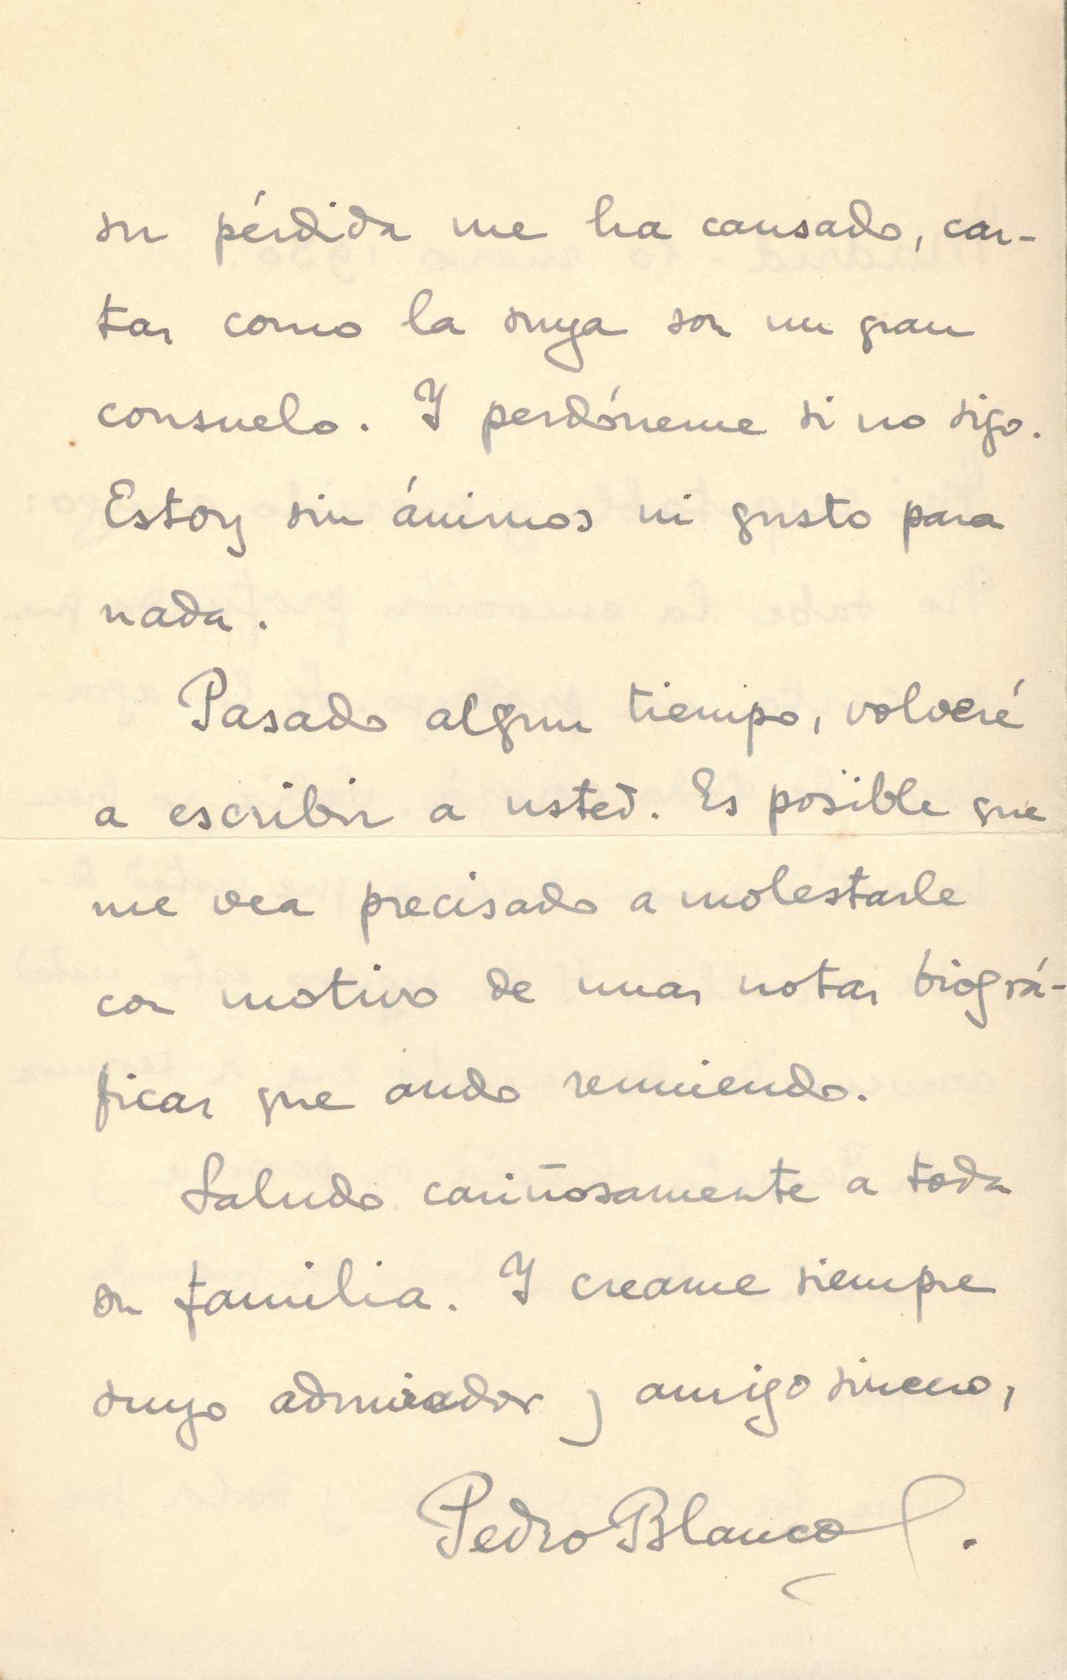 su pérdida me ha causado, car-
tas como la suya son un gran
consuelo. Y perdóneme si no sigo.
Estoy sin ánimos ni gusto para
nada.
Pasado algun tiempo, volveré
a escribir a usted. Es posible que
me vea precisado a molestarle
con motivo de unas notas biográ-
ficas que ando reuniendo.
Saludo cariñosamente a toda
su familia. Y creame siempre
suyo admirador y amigo sincero,
Pedro Blanco.